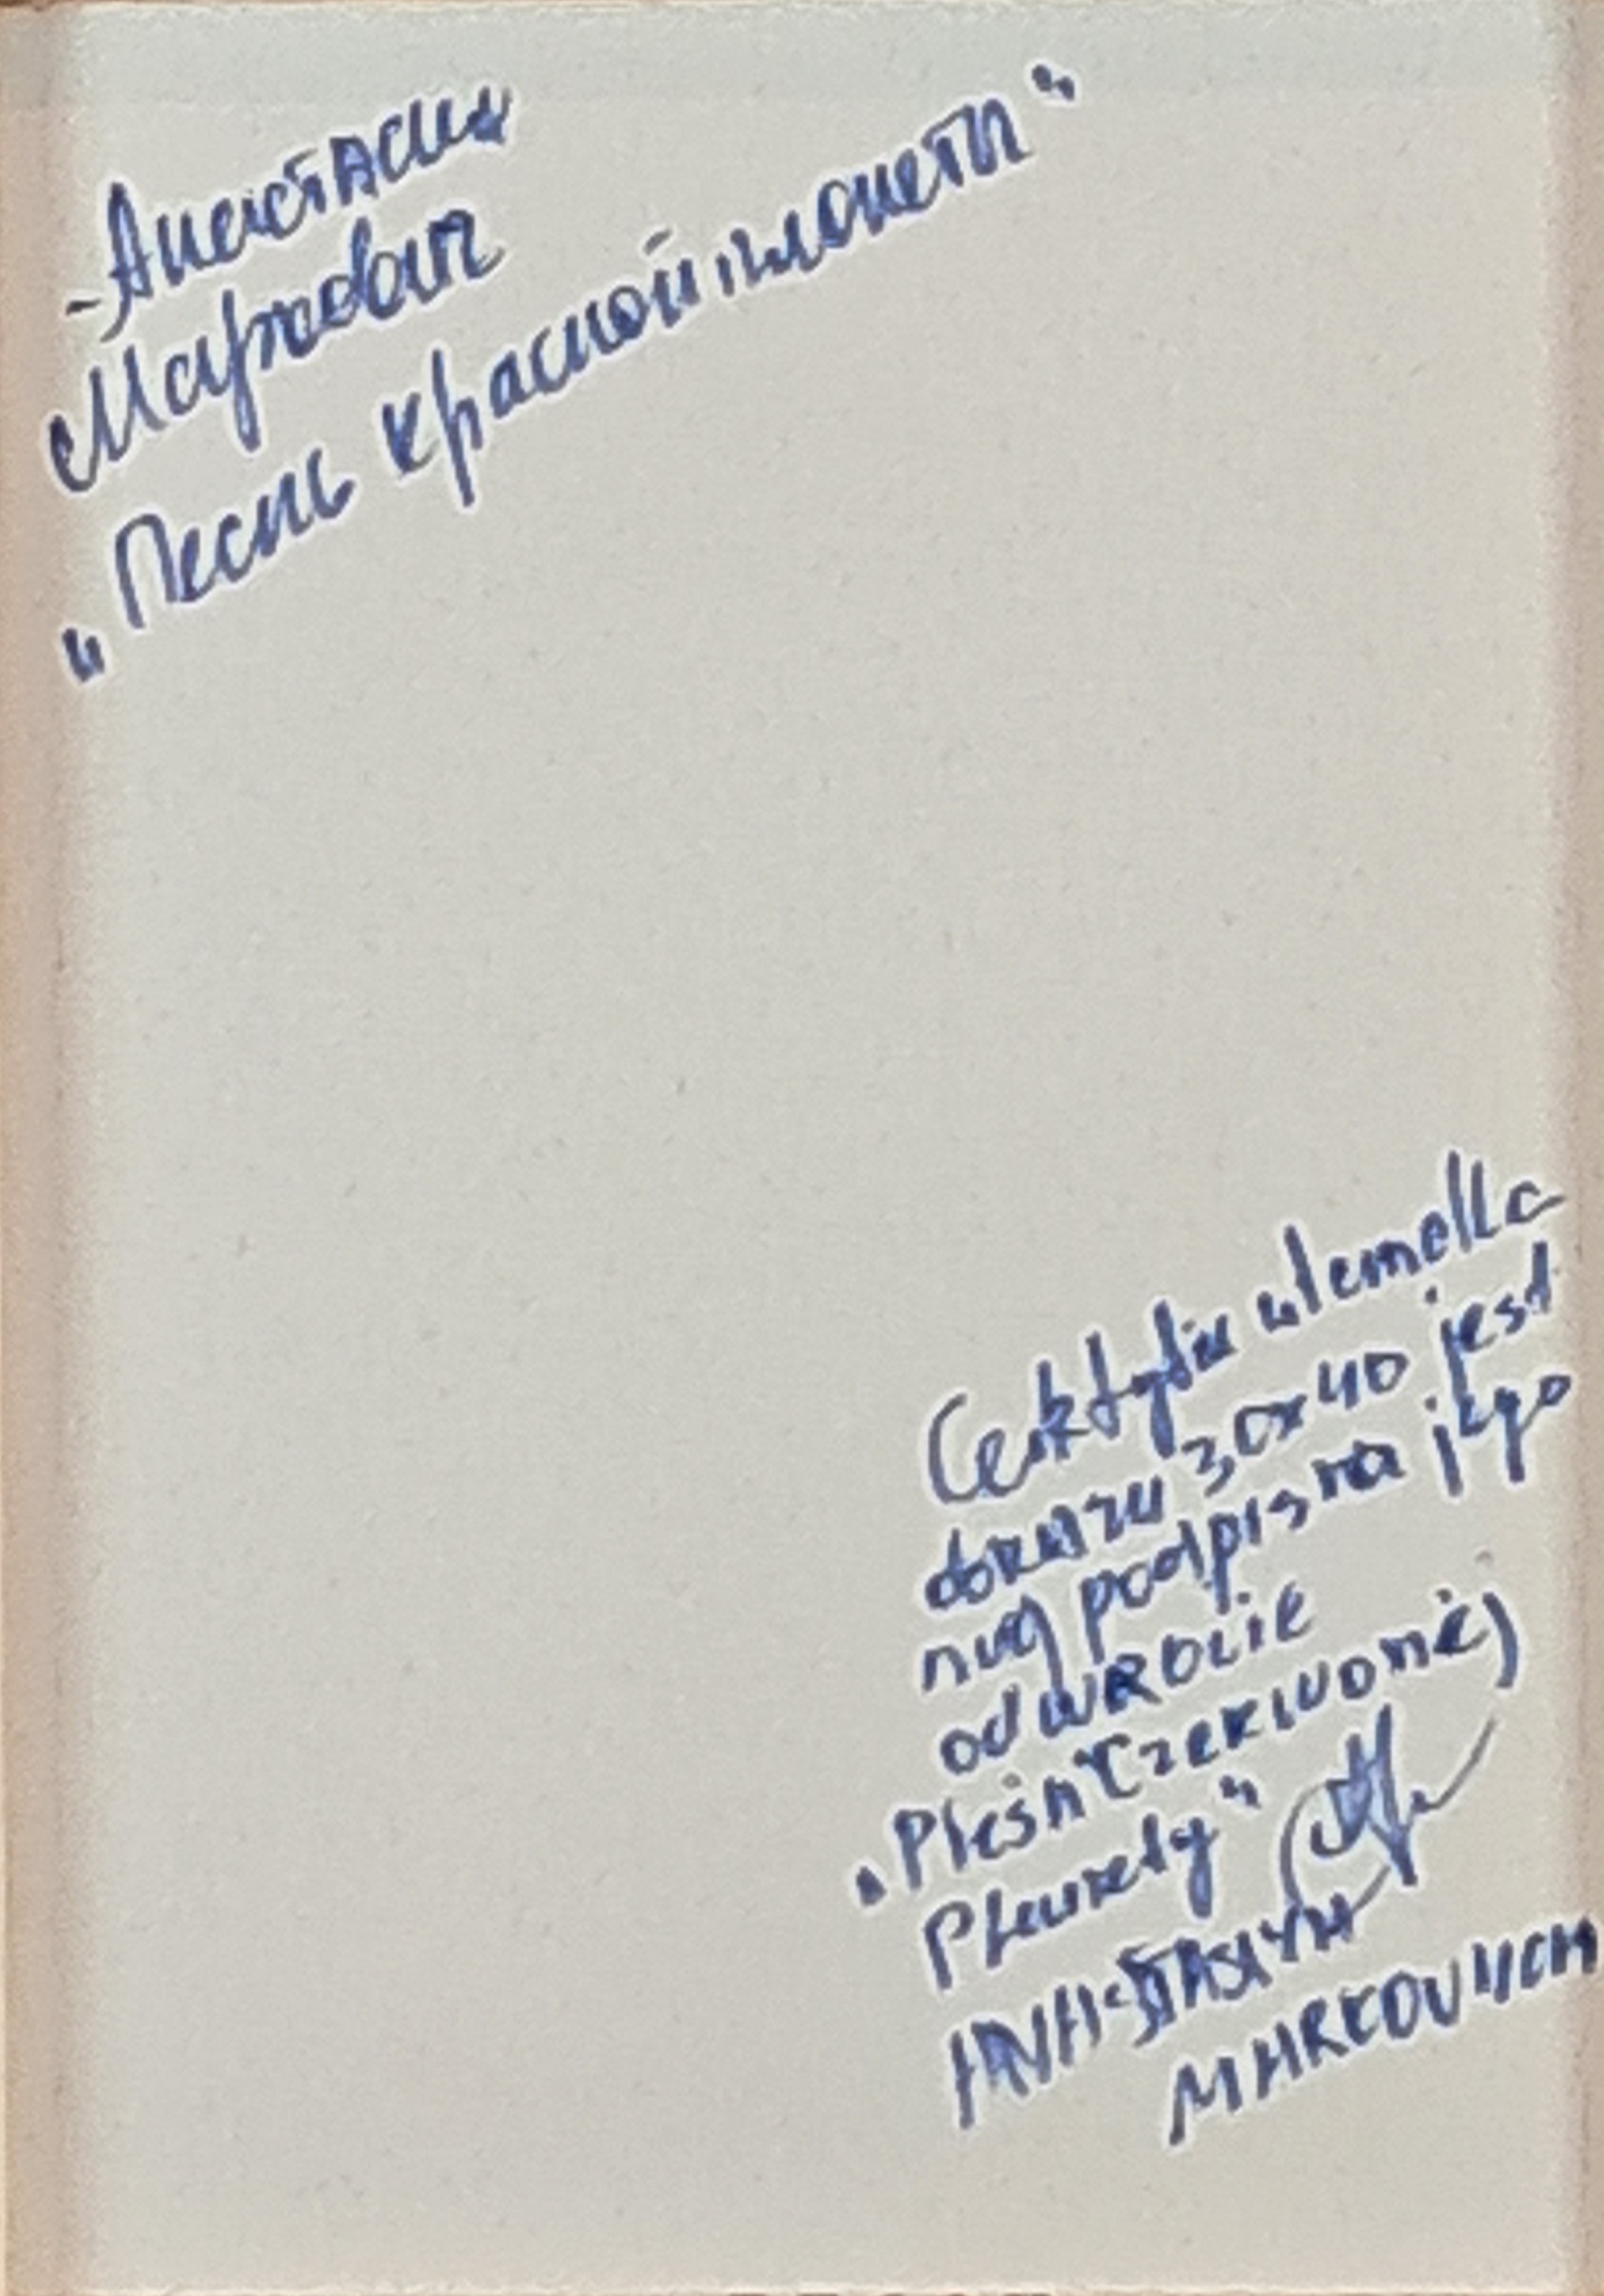 Анастасия
Маркович
„Песнь красной планеты"
30x40 jest
mój podpis na jego
odwrocie
„Pieśń Czerwonej
Planety"
ANASTASIYA
MARKOVYCH